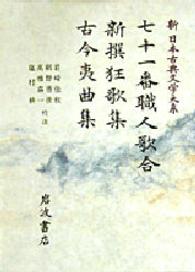 新日本古典文学大系
七十一番職人歌合
新撰狂歌集
古今夷曲集
岩崎佳枝
網野善彦
高橋喜一
塩村耕 校注
岩波書店